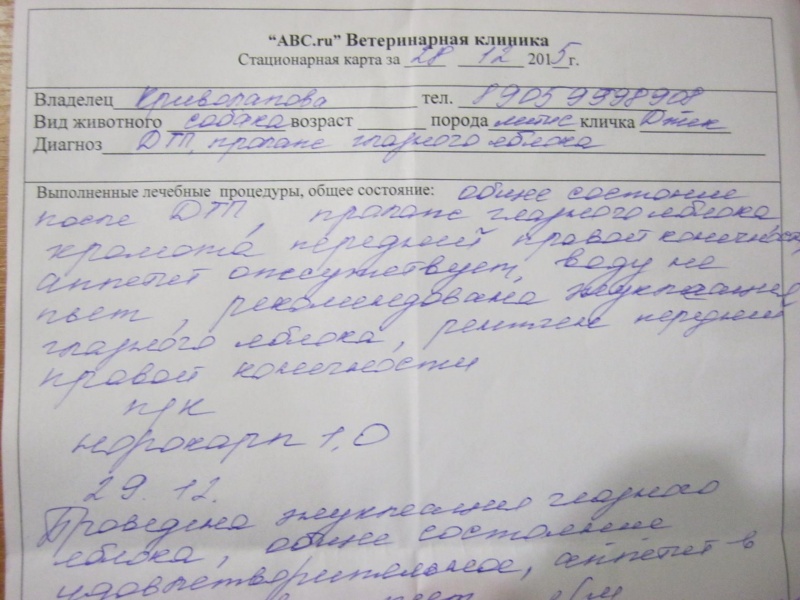 “ABC.ru” Ветеринарная клиника
Стационарная карта за 28 12 2015 г.
Владелец Криволапова тел. 89059598908
Вид животного собака возраст порода метис кличка Джек
Диагноз ДТП, пролапс глазного яблока
Выполненные лечебные процедуры, общее состояние: общее состояние
после ДТП, пролапс глазного яблока
хромота передней правой конечности
аппетит отсутствует, воду не
пьет, рекомендована энуклеация
глазного яблока, рентген передней
правой конечности
п/к
норокарп 1,0
29.12.
Проведена энуклеация глазного
яблока, общее состояние
удовлетворительное, аппетит в